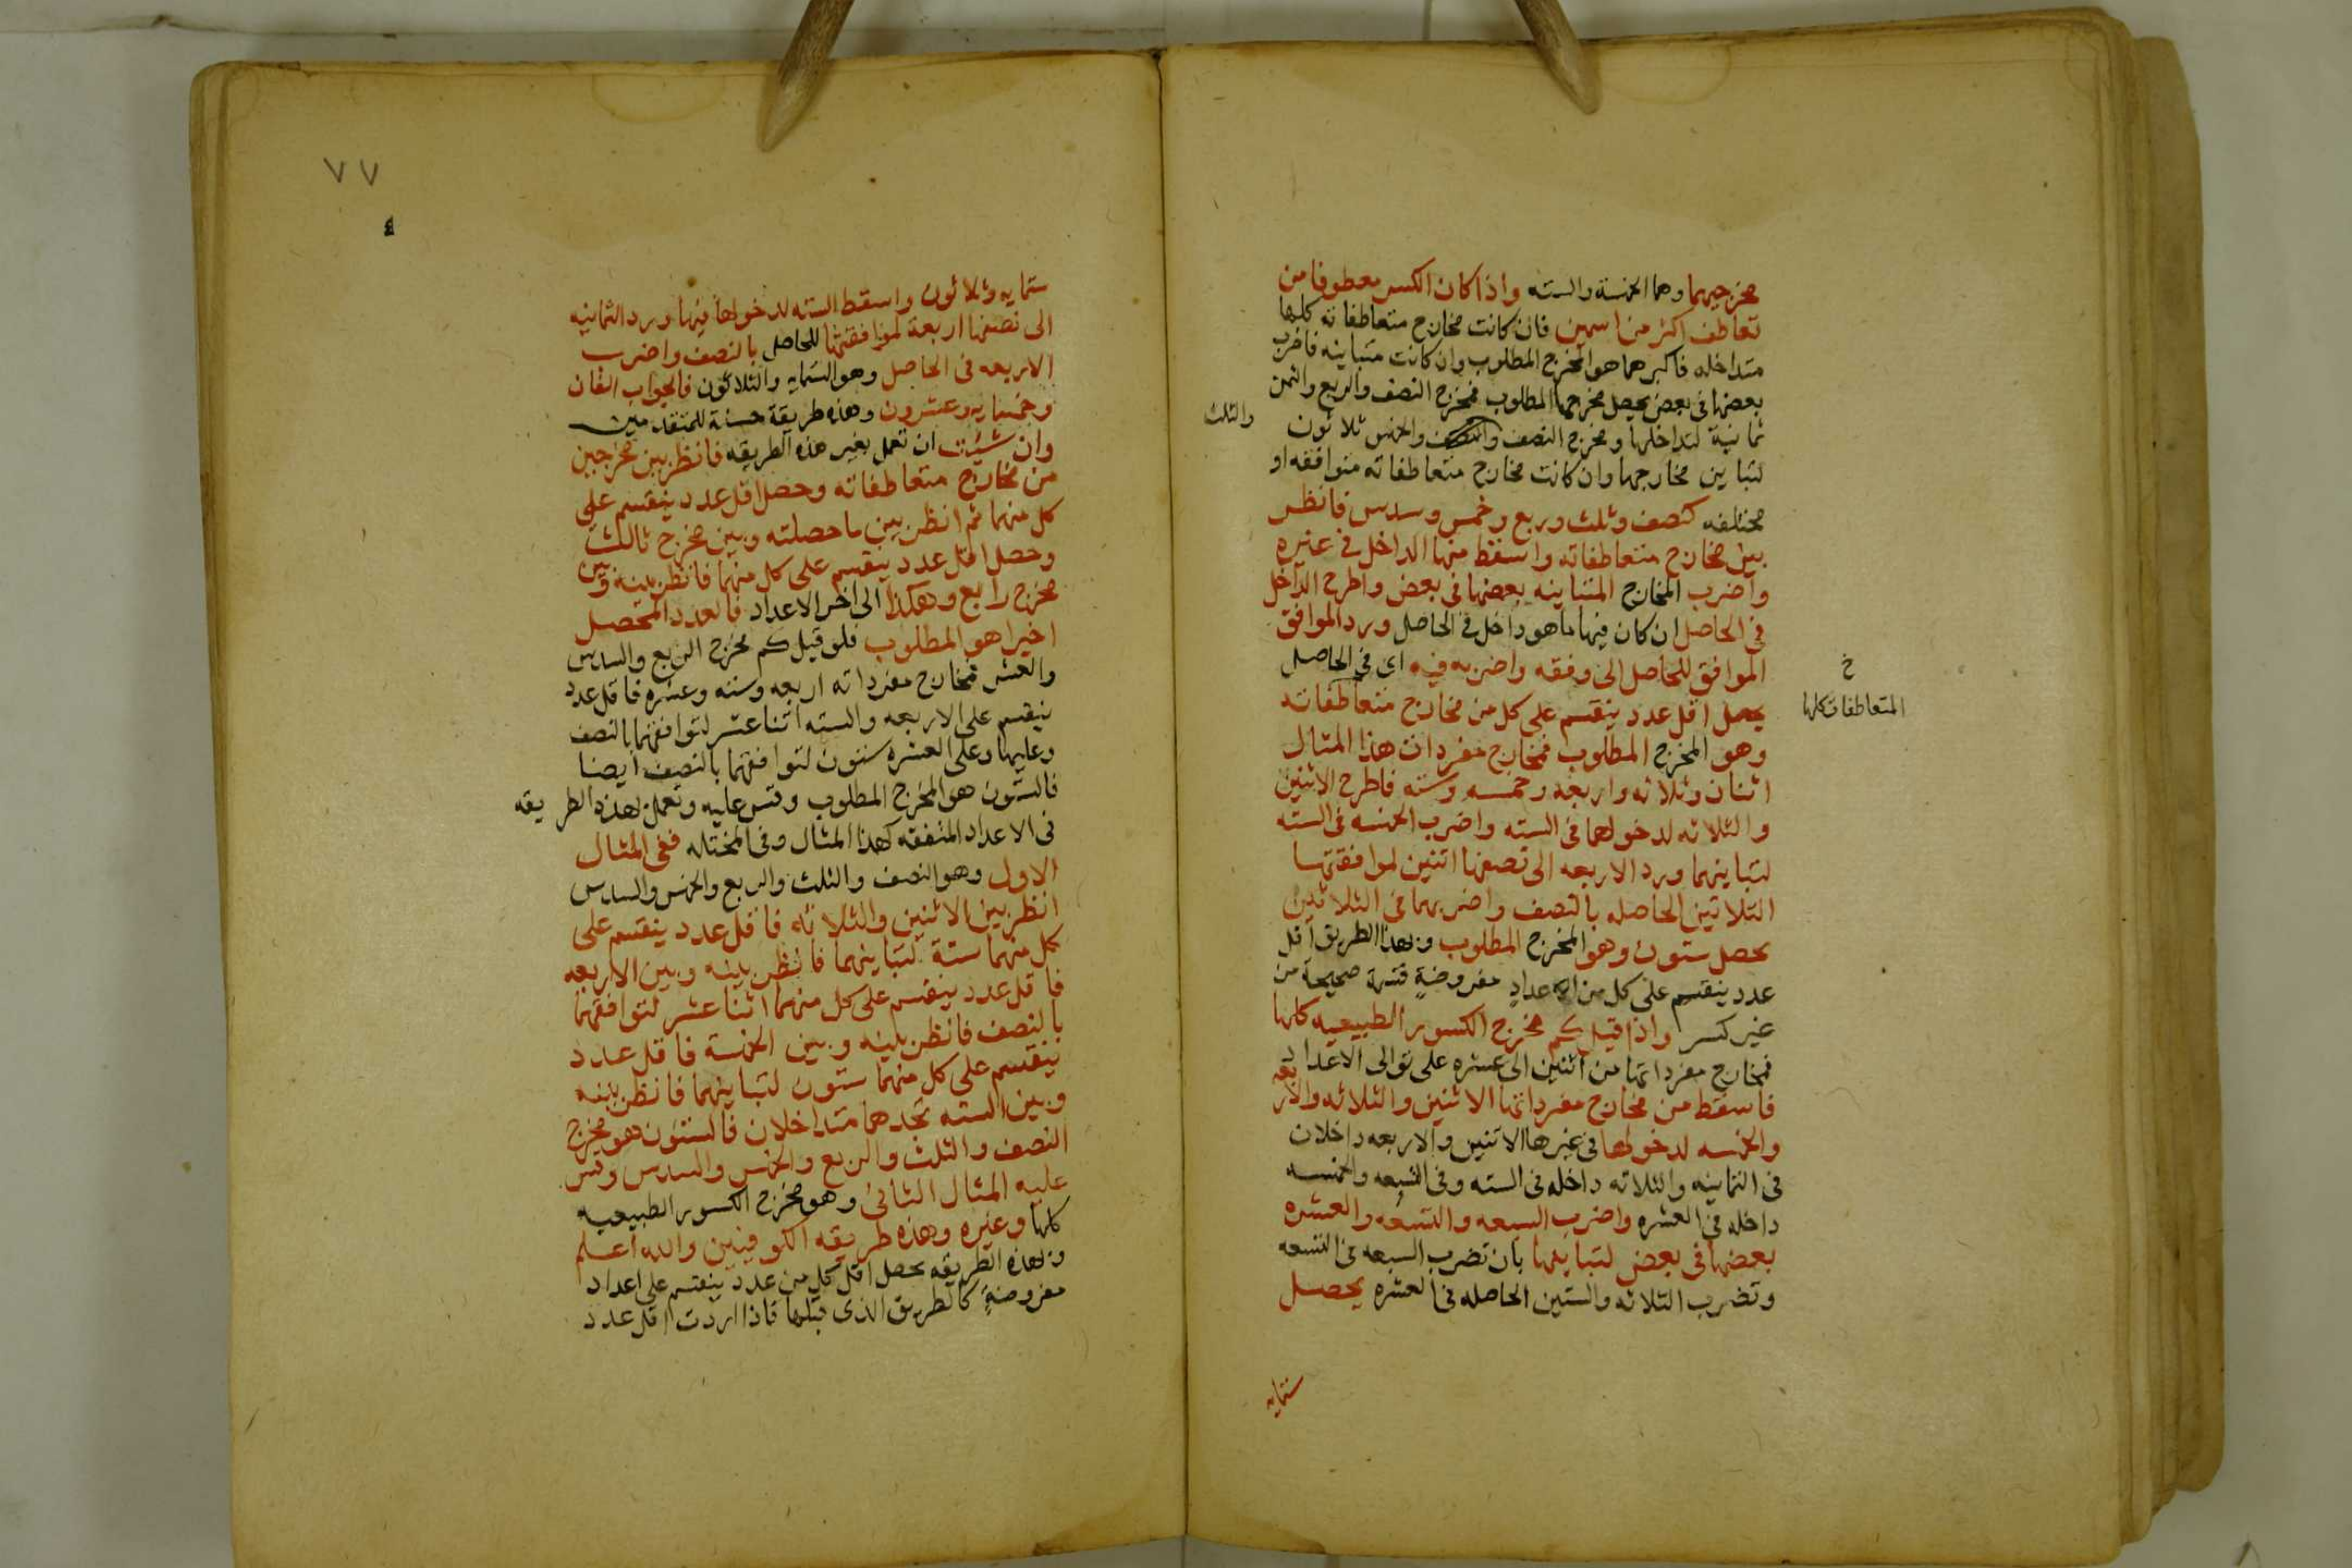 مخرجيهما وهما الخمسة والسته واذا كان الكسر معطوفا من
تعاطف اكثر من اسمين فان كانت مخارج متعاطفاته كلها
متداخله فاكبرهما هو المخرج المطلوب وان كانت متباينه فاضرب
بعضها في بعض يحصل مخرجها المطلوب فمخرج النصف والربع والثمن
ثمانية لتداخلها ومخرج النصف والخمس ثلاثون
والثلث
لتباين مخارجها وان كانت مخارج متعاطفاته متوافقه او
مختلفه كنصف وثلث وربع وخمس وسدس فانظر
بين مخارج متعاطفاته واسقط منها الداخل في غيره
واضرب المخارج المتباينه بعضها في بعض واطرح الداخل
في الحاصل ان كان فيها ما هو داخل في الحاصل ورد الموافق
الموافق للحاصل الى وفقه واضربه فيه اى في الحاصل
خ
المتعاطفات كلها
يحصل اقل عدد ينقسم على كل من مخارج متعاطفاته
وهو المخرج المطلوب فمخارج مفردات هذا المثال
اثنان وثلاثه واربعه وخمسه وسته فاطرح الاثنين
والثلاثه لدخولهما في السته واضرب الخمسه في السته
لتباينهما ورد الاربعه الى نصفها اثنين لموافقتها
الثلاثين الحاصله بالنصف واضربهما في الثلاثين
يحصل ستون وهو المخرج المطلوب وبهذا الطريق اقل
عدد ينقسم على كل من الاعداد مفروضةٍ قسمة صحيحة من
غير كسر واذا قيل كم مخرج الكسور الطبيعيه كلها
فمخارج مفرداتها من اثنين الى عشره على توالى الاعداد
فاسقط من مخارج مفرداتها الاثنين والثلاثه والاربعه
والخمسه لدخولها في غيرها الاثنين والاربعه داخلان
في الثمانيه والثلاثه داخله في السته وفي التسعه والخمسه
داخله في العشره واضرب السبعه والتسعه والعشره
بعضها في بعض لتباينها بان تضرب السبعه في التسعه
وتضرب الثلاثه والستين الحاصله في العشره يحصل
ستمايه
٧٧
ستمايه وثلاثون واسقط السته لدخولها فيها ورد الثمانيه
الى نصفها اربعة لموافقتها للحاصل بالنصف واضرب
الاربعه في الحاصل وهو الستمايه والثلاثون فالجواب الفان
وخمسمايه وعشرون وهذه طريقة حسنة للمتقدمين
وان شيت ان تعمل بغير هذه الطريقه فانظر بين مخرجين
من مخارج متعاطفاته وحصل اقل عدد ينقسم على
كل منهما ثم انظر بين ما حصلته وبين مخرج ثالث
وحصل اقل عدد ينقسم على كل منهما فانظر بينه وبين
مخرج رابع وهكذا الى اخر الاعداد فالعدد المحصل
اخيرا هو المطلوب فلو قيل كم مخرج الربع والسدس
والعشر فمخارج مفرداته اربعه وسته وعشره فاقل عدد
ينقسم على الاربعه والسته اثنا عشر لتوافقهما بالنصف
وعليها وعلى العشره ستون لتوافقهما بالنصف ايضا
فالستون هو المخرج المطلوب وقس عليه وتعمل بهذه الطريقه
في الاعداد المتفقه كهذا المثال وفي المختلفه ففي المثال
الاول وهو النصف والثلث والربع والخمس والسدس
انظر بين الاثنين والثلاثه فاقل عدد ينقسم على
كل منهما ستة لتباينهما فانظر بينه وبين الاربعه
فاقل عدد ينقسم على كل منهما اثنا عشر لتوافقهما
بالنصف فانظر بينه وبين الخمسة فاقل عدد
ينقسم على كل منهما ستون لتباينهما فانظر بينه
وبين السته تجدهما متداخلان فالستون هو مخرج
النصف والثلث والربع والخمس والسدس وقس
عليه المثال الثاني وهو مخرج الكسور الطبيعيه
كلها وغيره وهذه طريقه الكوفيين والله اعلم
وبهذه الطريقه يحصل اقل كل من عدد ينقسم على اعداد
مفروضةٍ كالطريق الذى قبلها فاذا اردت اقل عدد